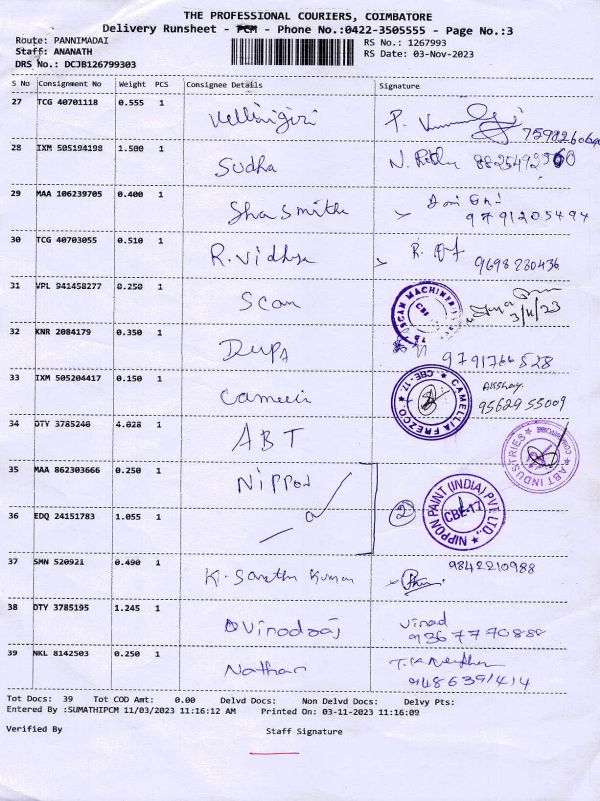 THE PROFESSIONAL COURIERS, COIMBATORE
Delivery Runsheet - PCM - Phone No.:0422-3505555 - Page No.:3
Route: PANNIMADAI
RS No.: 1267993
Staff: ANANATH
RS Date: 03-Nov-2023
DRS No.: DCJB126799303
S No Consignment No Weight PCS Consignee Details Signature
27 TCG 40701118 0.555 1 Vellingiri P.
28 IXM 505194198 1.500 1 Sudha
29 MAA 106239705 0.400 1 Shasmitha
9791205494
30 TCG 40703055 0.510 1 R. Vidhya R.
9698280436
31 VPL 941458277 0.250 1 Scan
3/11/23
32 KNR 2084179 0.350 1 Deepa
9791766528
33 IXM 505204417 0.150 1 CAMELLIA FREZCO CBE-17 Akshay.
9562955009
34 OTY 3785240 4.028 1 ABT
ABT INDUSTRIES COIMBATORE
35 MAA 862303666 0.250 1 Nippon
NIPPON PAINT (INDIA) PVT LTD., CBE-17
36 EDQ 24151783 1.055 1 2
37 SMN 520921 0.490 1 K. Sarathi Kumar 9842210988
38 OTY 3785195 1.245 1 Vinodraj Vinod
9367770888
39 NKL 8142503 0.250 1 Nathan
9486391414
Tot Docs: 39 Tot COD Amt: 0.00 Delvd Docs: Non Delvd Docs: Delvy Pts:
Entered By :SUMATHIPCM 11/03/2023 11:16:12 AM Printed On: 03-11-2023 11:16:09
Verified By Staff Signature